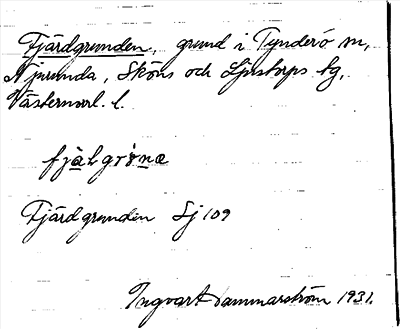 Fjärdgrunden, grund i Tynderö sn,
Njurunda, Sköns och Ljustorps tg,
Västernorrl. l.
Fjärdgrunden Sj 109
Ingvart Dammarström 1931.